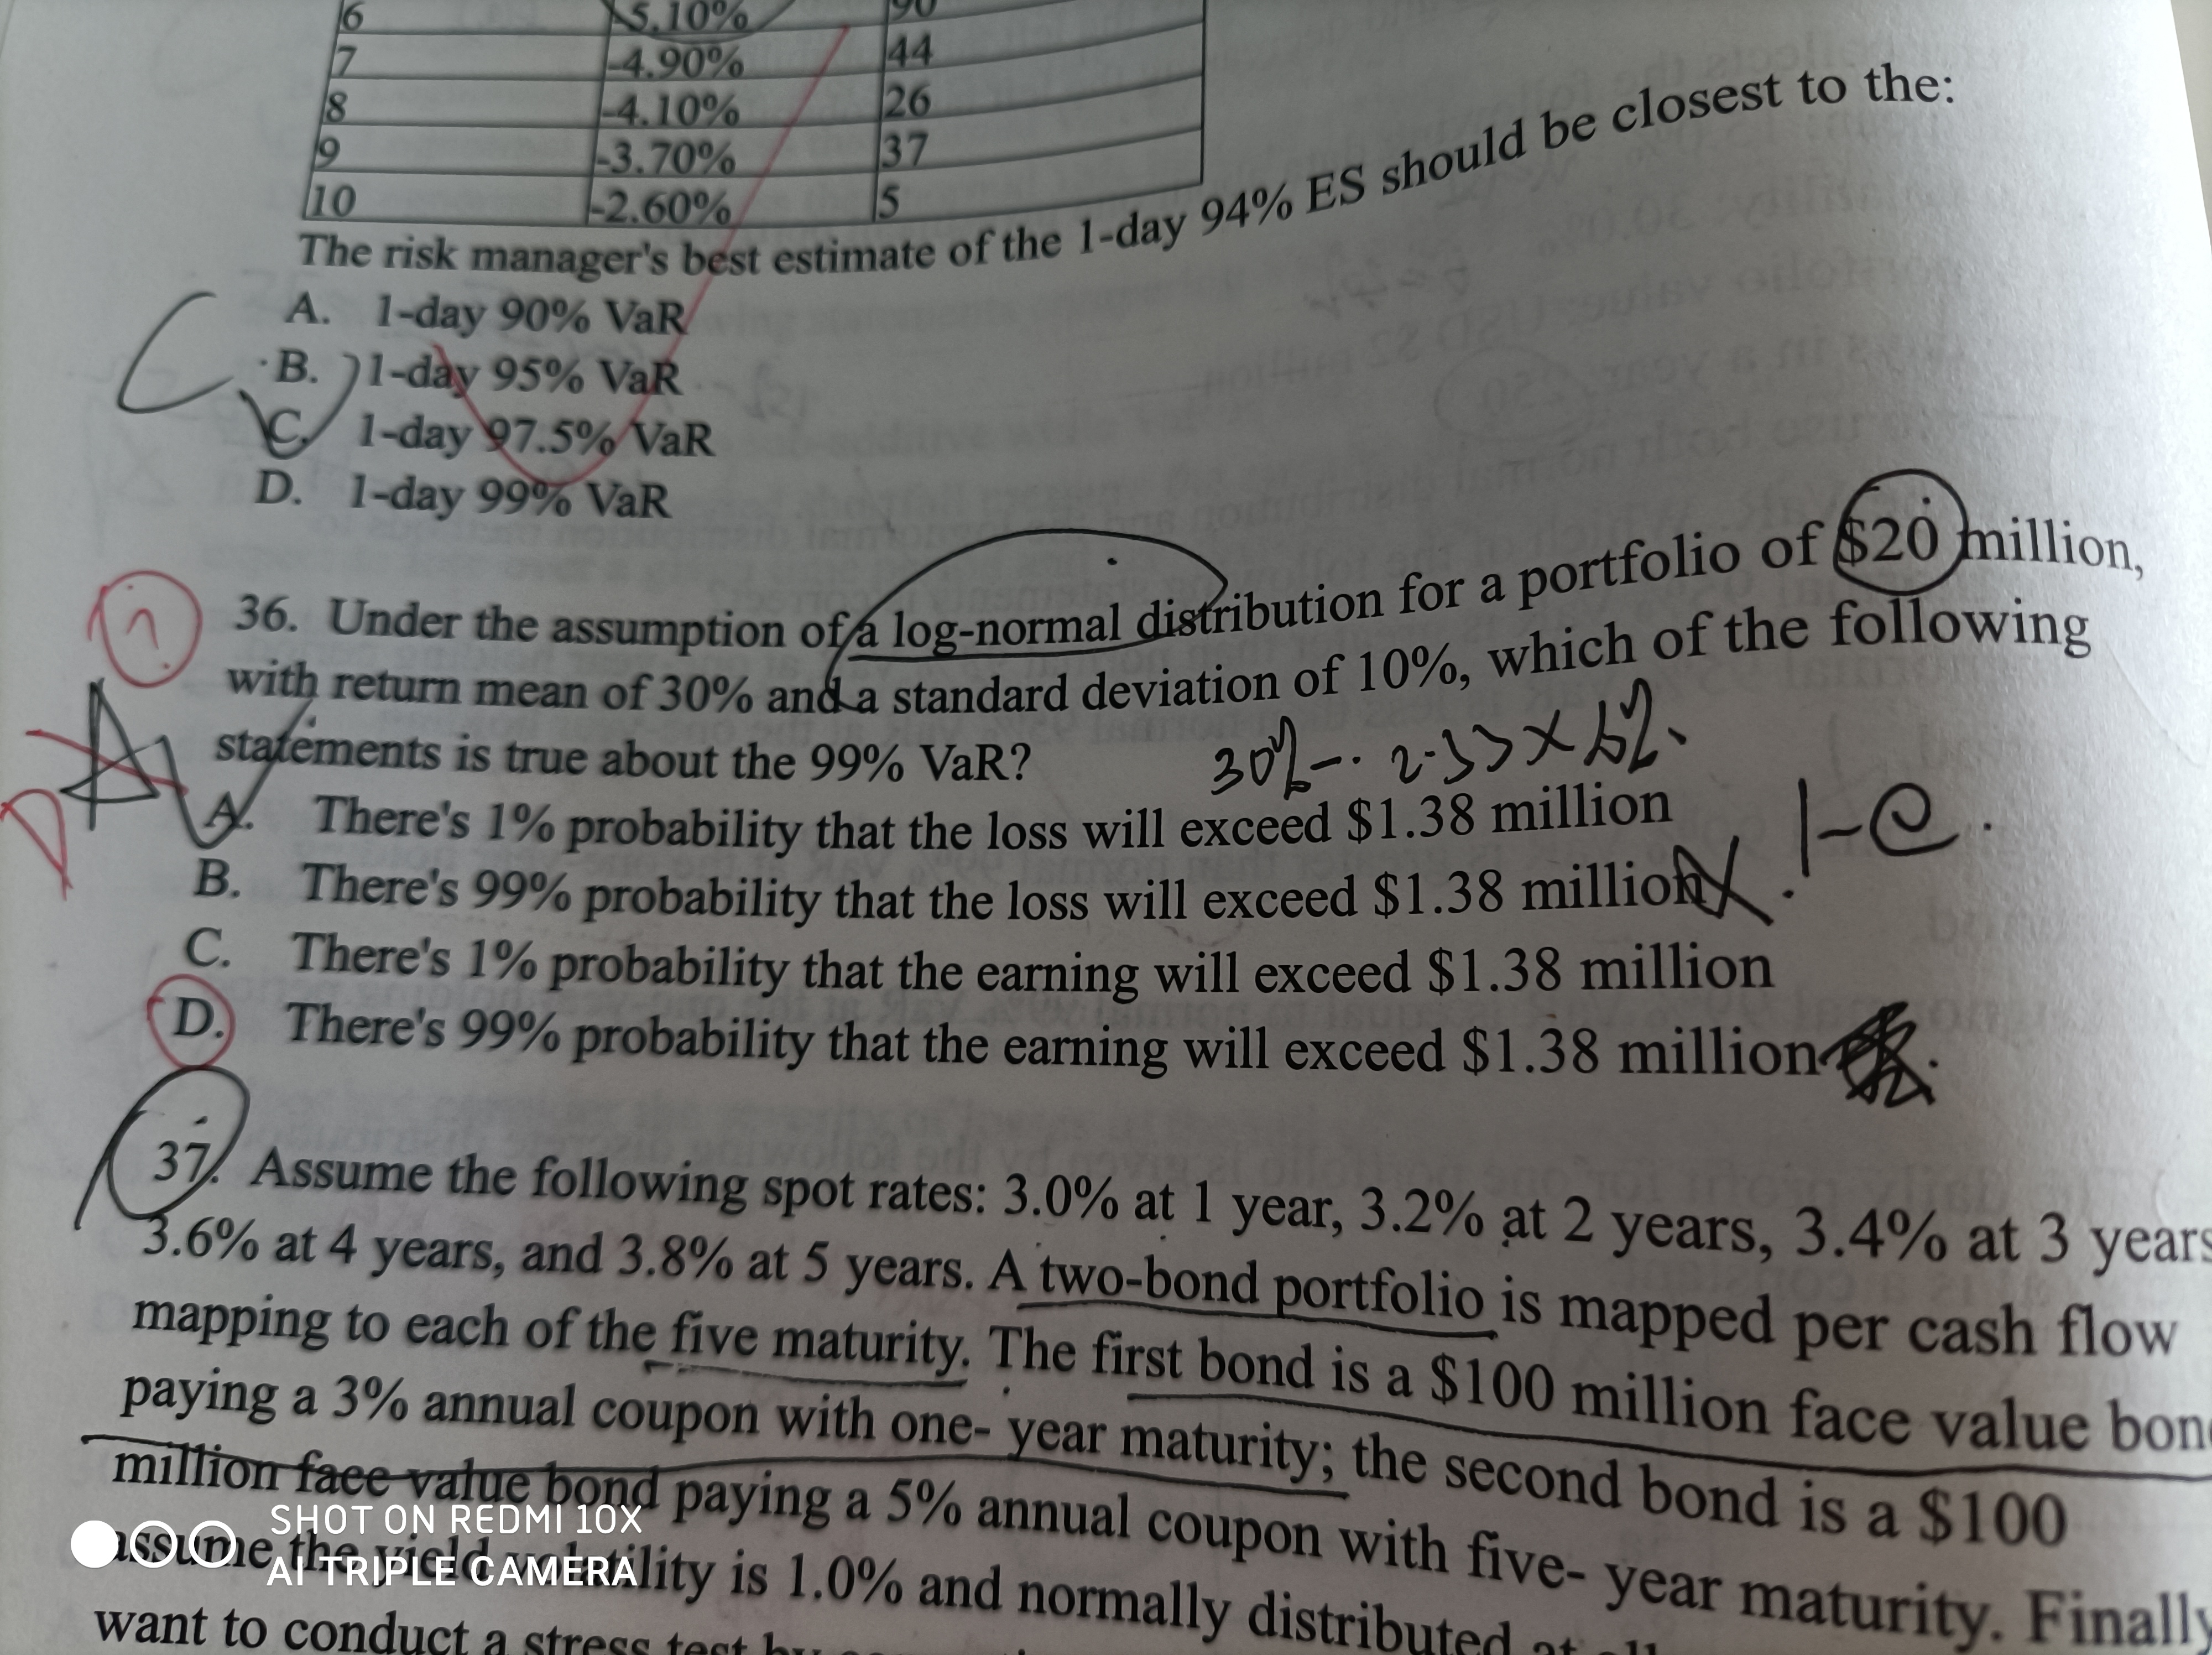 6 -5.10% 90
7 -4.90% 44
8 -4.10% 26
9 -3.70% 37
10 -2.60% 5
The risk manager's best estimate of the 1-day 94% ES should be closest to the:
A. 1-day 90% VaR
B. 1-day 95% VaR
C. 1-day 97.5% VaR
D. 1-day 99% VaR
36. Under the assumption of a log-normal distribution for a portfolio of $20 million,
with return mean of 30% and a standard deviation of 10%, which of the following
statements is true about the 99% VaR?
30% - 2.33 ×
A. There's 1% probability that the loss will exceed $1.38 million
1-e
B. There's 99% probability that the loss will exceed $1.38 million
C. There's 1% probability that the earning will exceed $1.38 million
D. There's 99% probability that the earning will exceed $1.38 million
37. Assume the following spot rates: 3.0% at 1 year, 3.2% at 2 years, 3.4% at 3 years
3.6% at 4 years, and 3.8% at 5 years. A two-bond portfolio is mapped per cash flow
mapping to each of the five maturity. The first bond is a $100 million face value bon
paying a 3% annual coupon with one- year maturity; the second bond is a $100
million face value bond paying a 5% annual coupon with five- year maturity. Finally
assume the yield volatility is 1.0% and normally distributed at
want to conduct a stress test
SHOT ON REDMI 10X
AI TRIPLE CAMERA